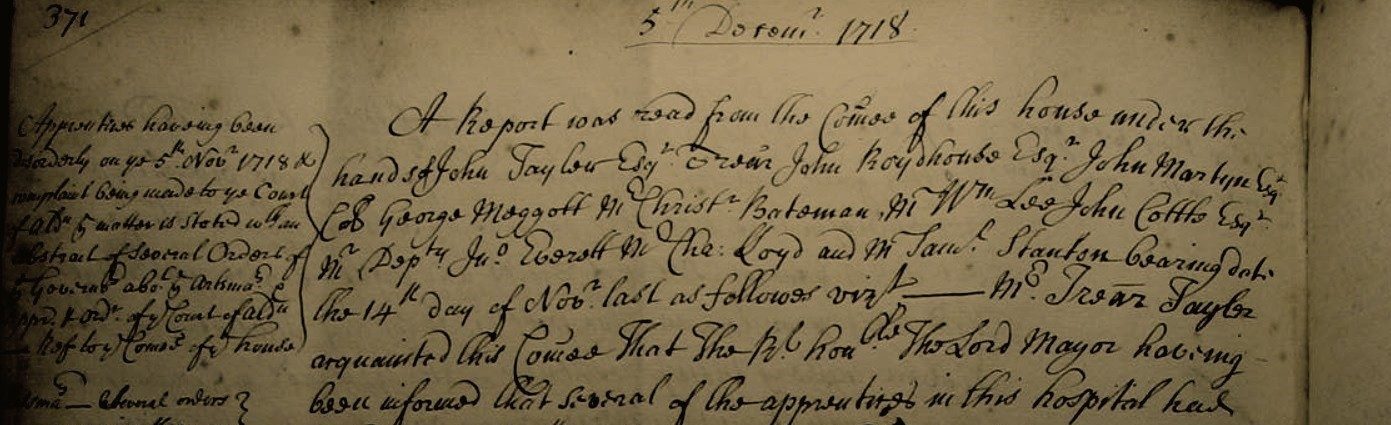 371
5th Decemr. 1718.
Apprentices haveing been
disorderly on ye 5th. Novr 1718 &
complaint being made to ye Court
of Aldn ye matter is Stated wth an
abstract of Several Orders of
ye Governrs abot. ye Artsman. &
Appr. & Ordr. of ye Court of Aldn
Ref to ye Comee of ye house
Several orders
A Report was read from the Comee of this house under the
hands of John Tayler Esqr. Trearr John Roydhouse Esqr. John Martyn Esqr
Coll George Meggott Mr Christr. Bateman Mr Wm Lee John Cotte Esqr.
Mr Depty Jno. Everett Mr Cha: Lloyd and Mr Saml. Stanton bearing date
the 14th day of Novr. last as followes vizt — Mr. Trearr Tayler
acquainted this Comee That The Rt honble The Lord Mayor haveing
been informed that several of the apprentices in this hospital had